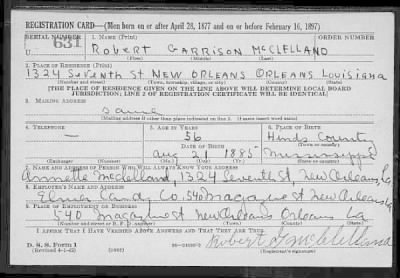 REGISTRATION CARD—(Men born on or after April 28, 1877 and on or before February 16, 1897)
SERIAL NUMBER
1. NAME (Print)
ORDER NUMBER
U 631
ROBERT GARRISON MCCLELLAND
2. PLACE OF RESIDENCE (Print)
1324 Seventh St NEW ORLEANS ORLEANS LOUISIANA
(Number and street) (Town, township, village, or city) (County) (State)
[THE PLACE OF RESIDENCE GIVEN ON THE LINE ABOVE WILL DETERMINE LOCAL BOARD
JURISDICTION; LINE 2 OF REGISTRATION CERTIFICATE WILL BE IDENTICAL]
3. MAILING ADDRESS
Same
[Mailing address if other than place indicated on line 2. If same insert word same]
4. TELEPHONE
5. AGE IN YEARS
6. PLACE OF BIRTH
—
56
Hinds County
DATE OF BIRTH
(Town or county)
Aug 31 1885
Mississippi
(Exchange) (Number)
(Mo.) (Day) (Yr.)
(State or country)
7. NAME AND ADDRESS OF PERSON WHO WILL ALWAYS KNOW YOUR ADDRESS
Annette McClelland, 1324 Seventh St, New Orleans, La
8. EMPLOYER'S NAME AND ADDRESS
Elmer Candy Co. 540 Magazine St New Orleans La
9. PLACE OF EMPLOYMENT OR BUSINESS
540 Magazine St New Orleans Orleans La
(Number and street or R. F. D. number) (Town) (County) (State)
I AFFIRM THAT I HAVE VERIFIED ABOVE ANSWERS AND THAT THEY ARE TRUE.
D. S. S. Form 1
(Revised 4-1-42)
(over)
Robert G McClelland